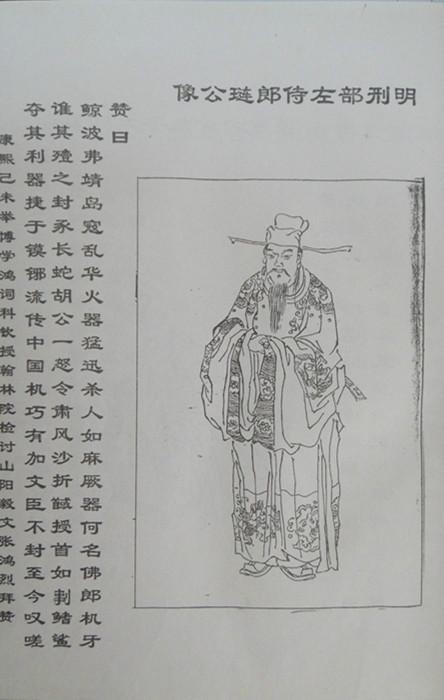 明刑部左侍郎琏公像
赞曰
鲸波弗靖岛寇乱华火器猛迅杀人如麻厥器何名佛郎机牙
谁其殪之封豕长蛇胡公一怒令肃风沙折馘授首如鳍鲨
夺其利器捷于镆铘流传中国机巧有加文臣不封至今叹嗟
康熙己未举博学鸿词科钦授翰林院检讨山阳毅文张鸿烈拜赞